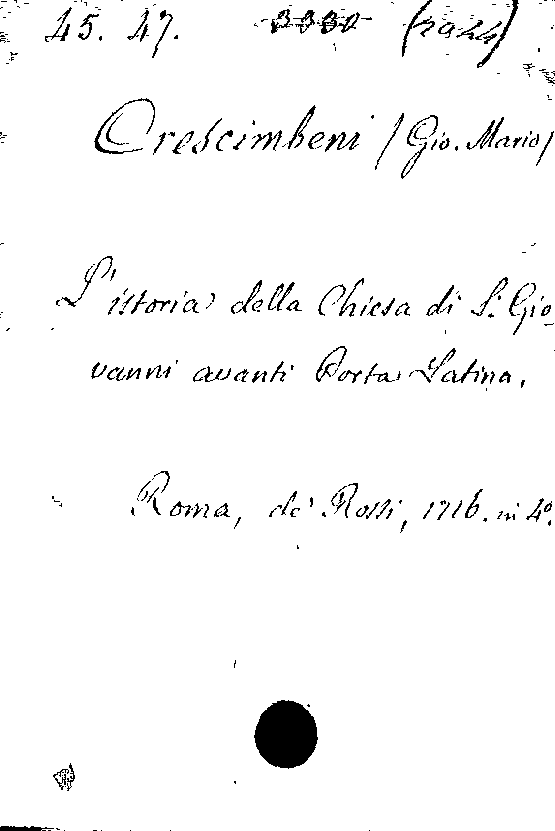 45. 47. 3330 (2924)
Crescimbeni / Gio. Mario /
L'istoria della Chiesa di S. Gio-
vanni avanti Porta Latina.
Roma, de' Rossi, 1716. in 4º.